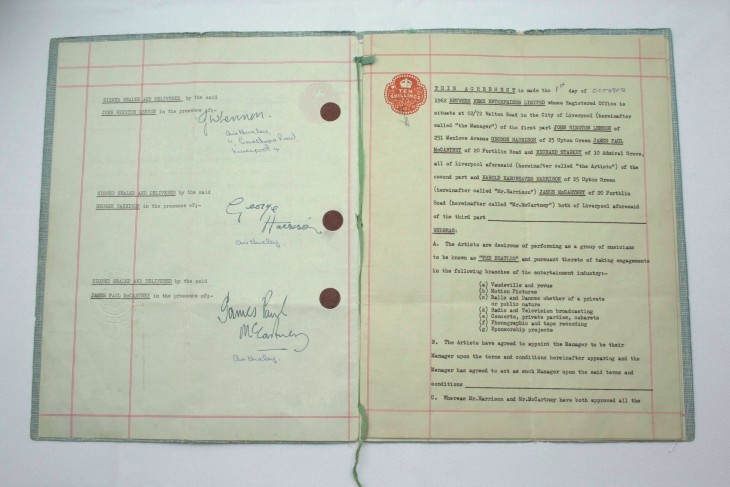 SIGNED SEALED AND DELIVERED by the said
JOHN WINSTON LENNON in the presence of:-
JWLennon.
Liverpool 4
SIGNED SEALED AND DELIVERED by the said
GEORGE HARRISON in the presence of;-
George
Harrison
SIGNED SEALED AND DELIVERED by the said
JAMES PAUL McCARTNEY in the presence of;-
James Paul
McCartney
TEN
SHILLINGS
THIS AGREEMENT is made the 1st day of OCTOBER
1962 BETWEEN NEMS ENTERPRISES LIMITED whose Registered Office is
situate at 62/72 Walton Road in the City of Liverpool (hereinafter
called "the Manager") of the first part JOHN WINSTON LENNON of
251 Menlove Avenue GEORGE HARRISON of 25 Upton Green JAMES PAUL
McCARTNEY of 20 Forthlin Road and RICHARD STARKEY of 10 Admiral Grove,
all of Liverpool aforesaid (hereinafter called "the Artists") of the
second part and HAROLD HARGREAVES HARRISON of 25 Upton Green
(hereinafter called "Mr.Harrison") JAMES McCARTNEY of 20 Forthlin
Road (hereinafter called "Mr.McCartney") both of Liverpool aforesaid
of the third part
WHEREAS:
A. The Artists are desirous of performing as a group of musicians
to be known as "THE BEATLES" and pursuant thereto of taking engagements
in the following branches of the entertainment industry:-
(a) Vaudeville and revue
(b) Motion Pictures
(c) Balls and Dances whether of a private
or public nature
(d) Radio and Television broadcasting
(e) Concerts, private parties, cabarets
(f) Phonographic and tape recording
(g) Sponsorship projects
B. The Artists have agreed to appoint the Manager to be their
Manager upon the terms and conditions hereinafter appearing and the
Manager has agreed to act as such Manager upon the said terms and
conditions
C. Whereas Mr.Harrison and Mr.McCartney have both approved all the